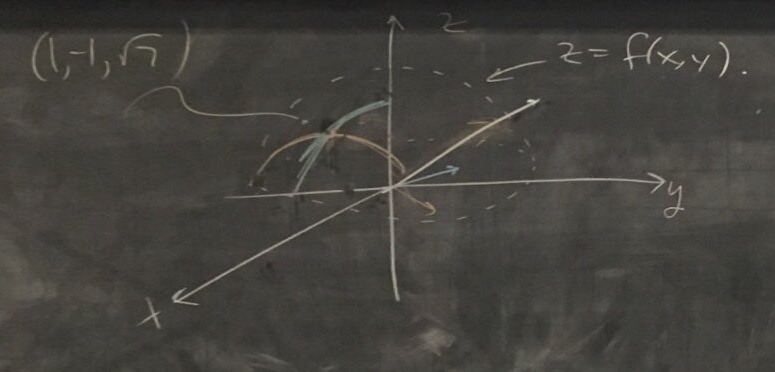 (1,-1,√7)
z
z = f(x,y).
y
x